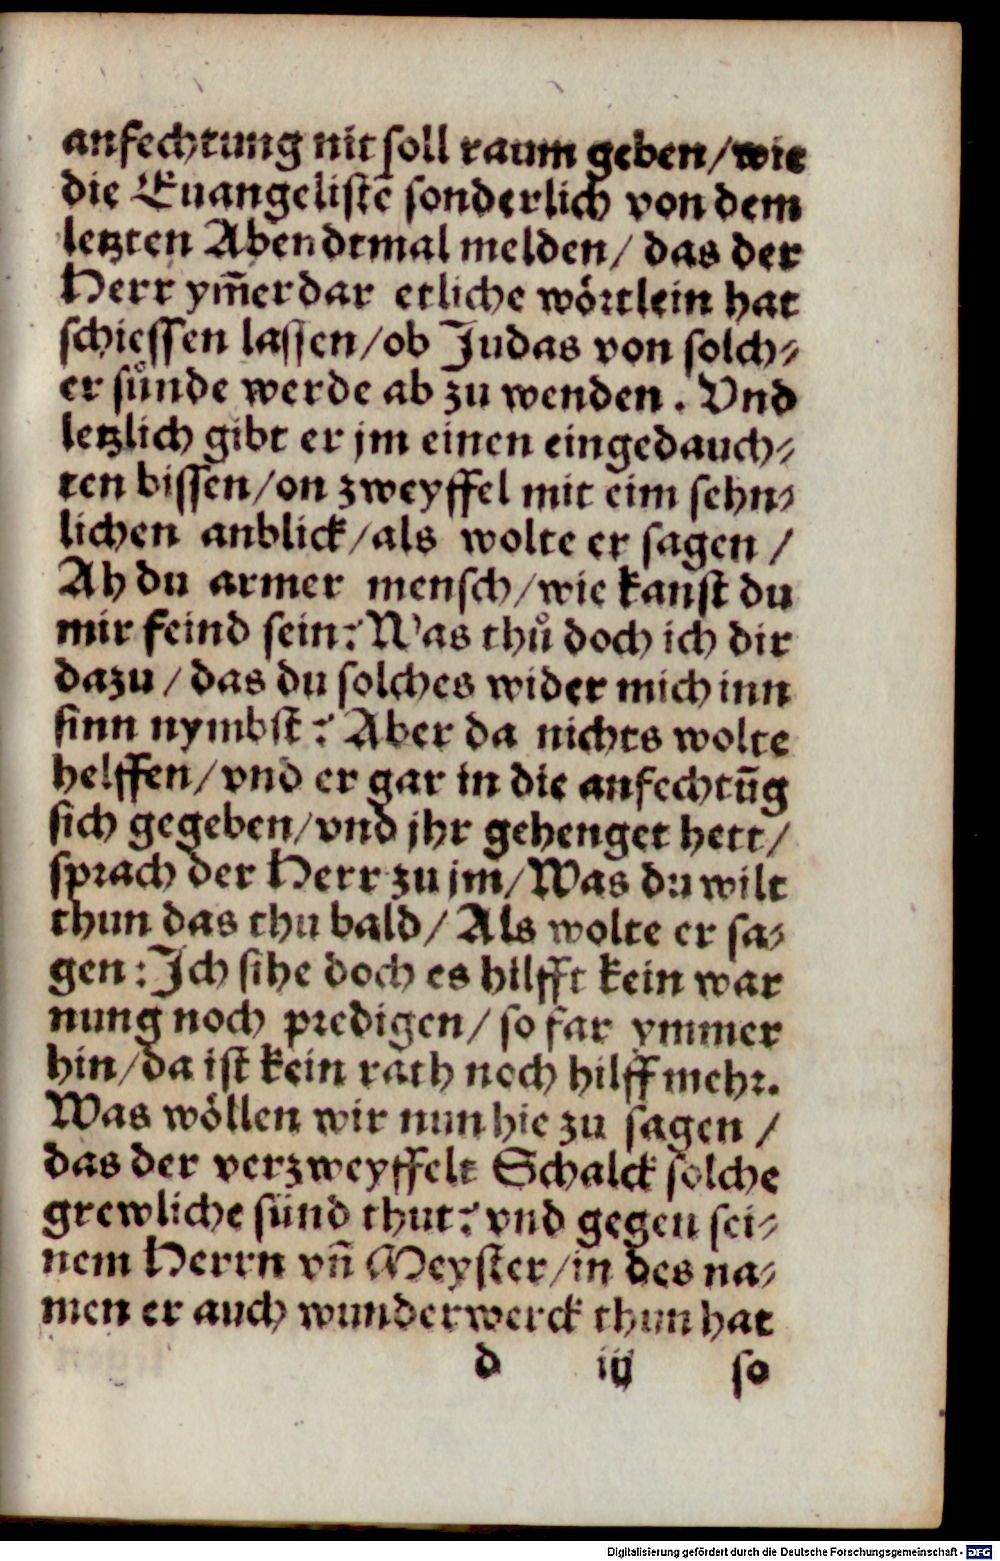 anfechtung nit soll raum geben/wie
die Euangelistē sonderlich von dem
letzten Abendtmal melden/ das der
Herr ym̄erdar etliche wörtlein hat
schiessen lassen/ob Judas von solch⸗
er sůnde werde ab zu wenden. Vnd
letzlich gibt er jm einen eingedauch⸗
ten bissen/on zweyffel mit eim sehn⸗
lichen anblick/als wolte er sagen /
Ah du armer mensch/wie kanst du
mir feind sein? Was thů doch ich dir
dazu / das du solches wider mich inn
sinn nymbst? Aber da nichts wolte
helffen/vnd er gar in die anfechtūg
sich gegeben/vnd jhr gehenget hett/
sprach der Herr zu jm/Was du wilt
thun das thu bald/ Als wolte er sa⸗
gen: Ich sihe doch es hilfft kein war
nung noch predigen/ so far ymmer
hin/da ist kein rath noch hilff mehr.
Was wöllen wir nun hie zu sagen /
das der verzweyffelt Schalck solche
grewliche sünd thut? vnd gegen sei⸗
nem Herrn vn̄ Meyster/in des na⸗
men er auch wunderwerck thun hat
d iij so
Digitalisierung gefördert durch die Deutsche Forschungsgemeinschaft - DFG